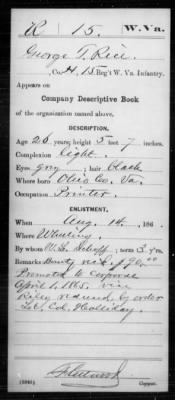 R 15. W. Va.
George T. Rice
, Co. H, 15 Reg't W. Va. Infantry.
Appears on
Company Descriptive Book
of the organization named above.
DESCRIPTION.
Age 26 years; height 5 feet 7 inches.
Complexion light
Eyes gray ; hair black
Where born Ohio Co. Va.
Occupation Printer
ENLISTMENT.
When Aug. 14, 186 .
Where Wheeling
By whom ; term 3 y'rs.
Remarks Bounty
Promoted to Corporal
April 1, 1865. vice
Riley reduced by order
Lt. Col. Holliday.
Copyist.